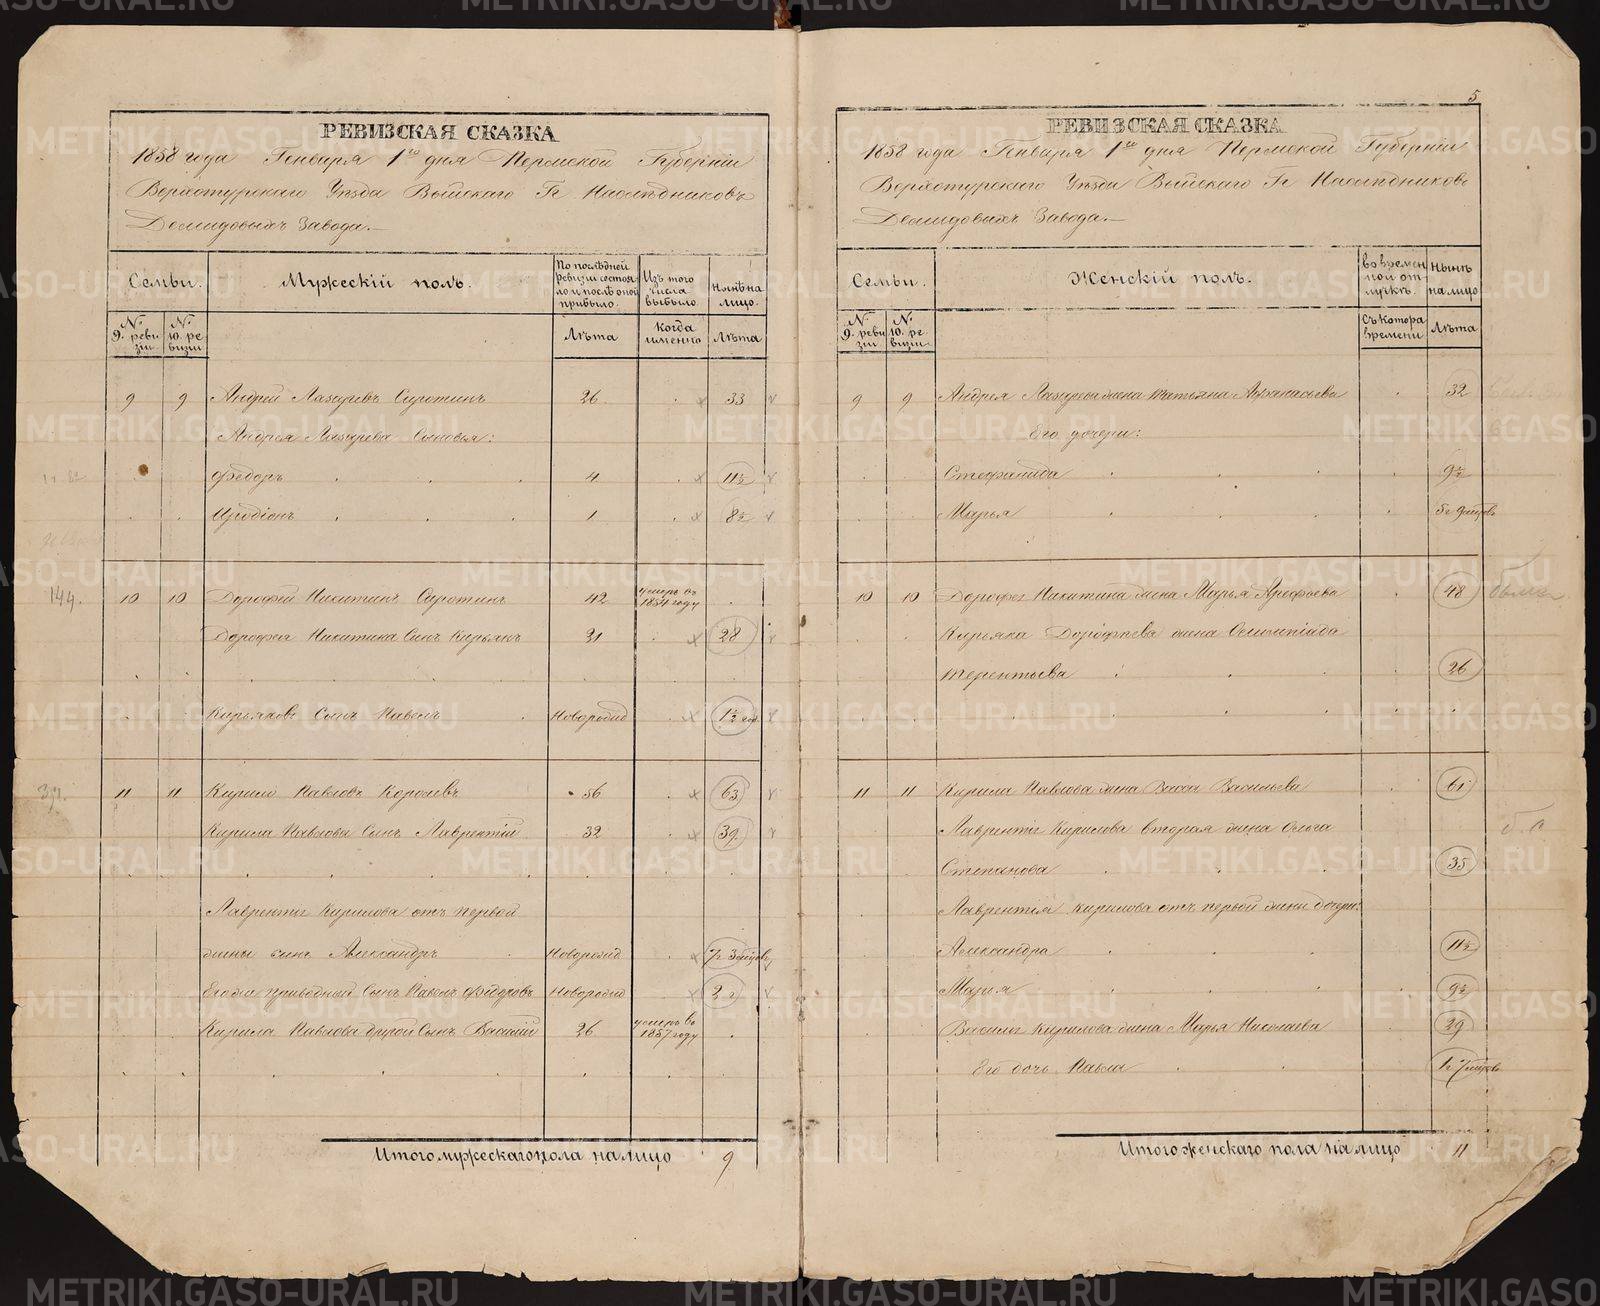 РЕВИЗСКАЯ СКАЗКА
1858 года Генваря 1го дня Пермской Губерніи
Верхотурскаго Уѣзда Выйскаго Гг Наслѣдниковъ
Демидовыхъ Завода.
Семьи.
Мужескій полъ.
По послѣдней ревизіи состояло и послѣ оной прибыло.
Изъ того числа выбыло
Нынѣ на лицо.
№ 9. ревизіи
№ 10. ревизіи
Лѣта
Когда именно
Лѣта
9 9 Андрей Лазаревъ Сиротинъ 26 33
Андрея Лазарева Сыновья:
Федоръ 4 11½
Иродіонъ 1 8½
144. 10 10 Дорофей Никитинъ Сиротинъ 42 умеръ въ 1854 году
Дорофея Никитина Сынъ Кирьякъ 21 28
Кирьяковъ Сынъ Павелъ Новорожд 1½ год
11 11 Кирило Павловъ Королевъ 56 63
Кирила Павлова Сынъ Лаврентій 32 39
Лаврентія Кирилова отъ первой
жены сынъ Александръ Новорожд 7 г 3 мѣсцовъ
Его же приводный Сынъ Павелъ Федоровъ Новорожд 2 г
Кирила Павлова другой Сынъ Василій 26 умеръ въ 1857 году
Итого мужескаго пола на лицо 9
5
РЕВИЗСКАЯ СКАЗКА
1858 года Генваря 1го дня Пермской Губерніи
Верхотурскаго Уѣзда Выйскаго Гг Наслѣдниковъ
Демидовыхъ Завода.
Семьи.
Женскій полъ.
во временной отлучкѣ
Нынѣ на лицо
№ 9. ревизіи
№ 10. ревизіи
Съ котора времени
Лѣта
9 9 Андрея Лазарева жена Татьяна Афанасьева 32
Его дочери:
Стефанида 9½
Марья 5 г 9 мѣсцовъ
10 10 Дорофея Никитина жена Марья Ярофѣева 48
Кирьяка Дорофѣева жена Олимпіада
Терентьева 26
11 11 Кирила Павлова жена Васса Васильева 61
Лаврентія Кирилова вторая жена Ольга
Степанова 35
Лаврентія Кирилова отъ первой жены дочери:
Александра 11½
Марья 9½
Василья Кирилова жена Марья Николаева 29
Его дочь Павла 1 г 7 мѣсцовъ
Итого женскаго пола на лицо 11
METRIKI.GASO-URAL.RU